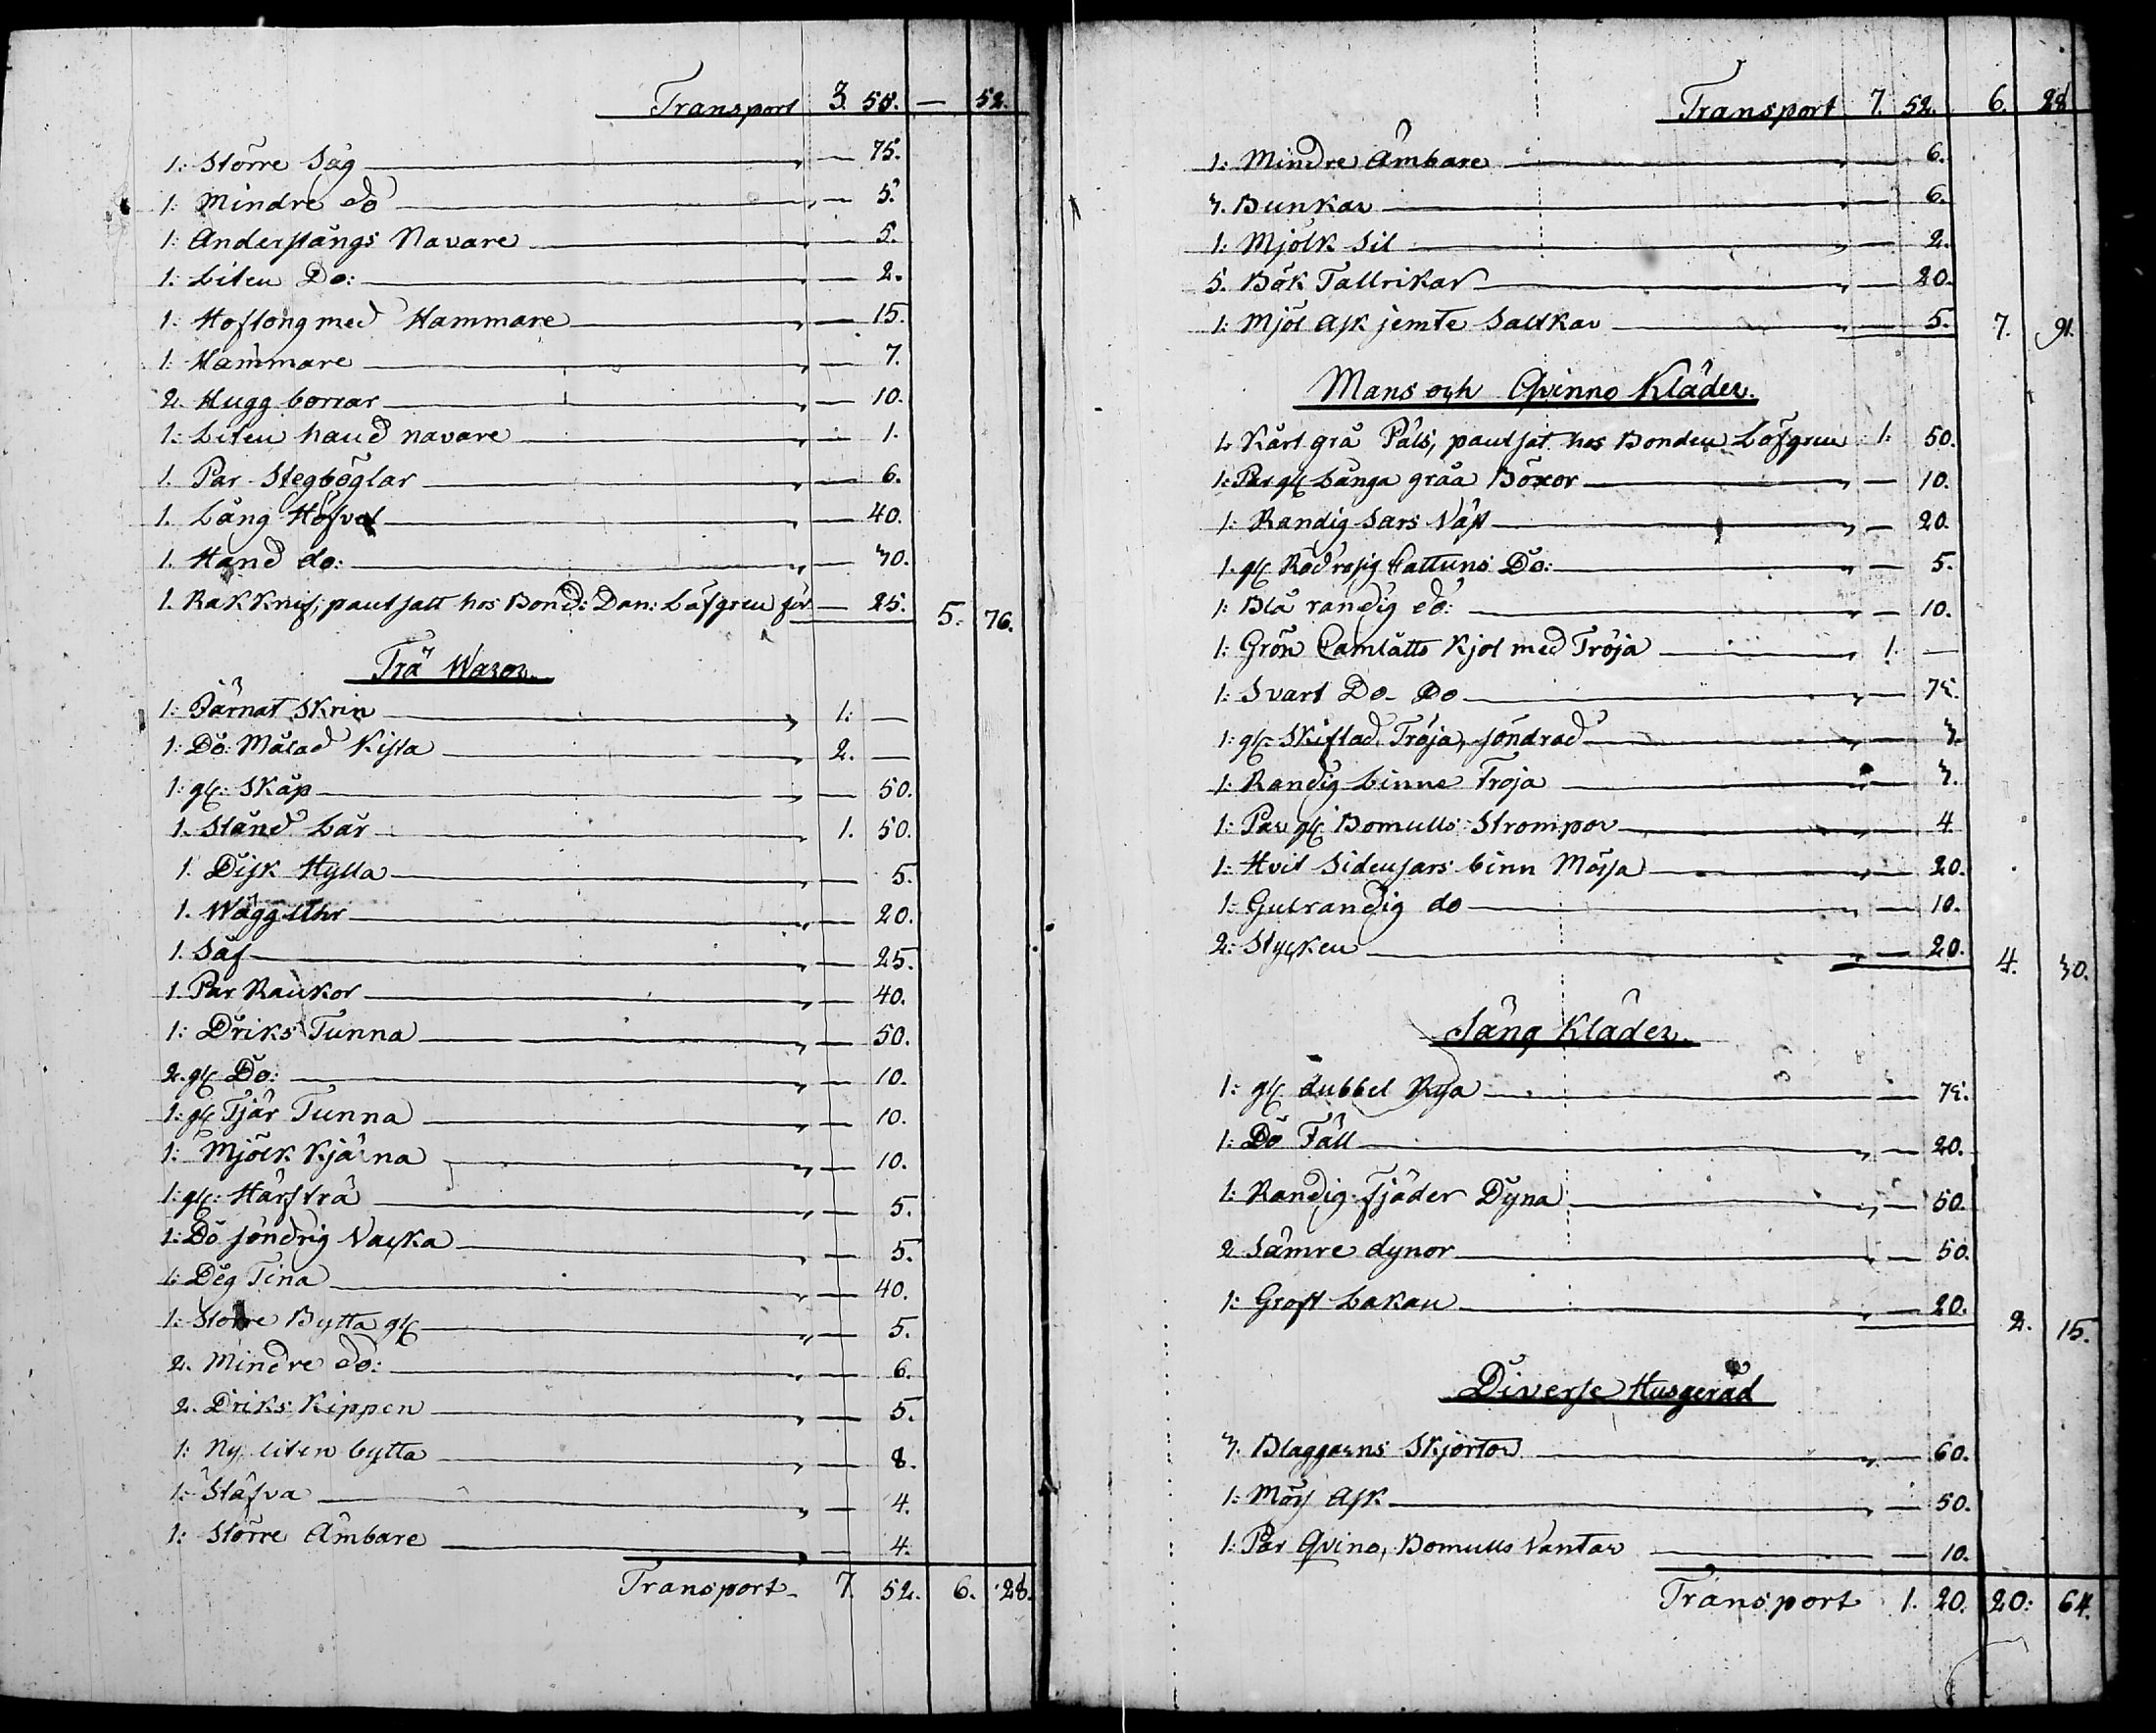 Transport 3. 55. — 52.
1: Större Såg — 75.
1: Mindre do — 5.
1: Anderstångs Navare — 5.
1: Liten Do: — 2.
1: Hoftong med Hammare — 15.
1: Hammare — 7.
2. Hugg borrar — 10.
1: Liten hand navare — 1.
1. Par Stegböglar — 6.
1. Lång Höfvel — 40.
1. Hand do: — 30.
1. Rakknif, pantsatt hos Bond: Dan: Löfgren för — 25. 5. 76.
Trä Waror.
1: Järnat Skrin 1: —
1: Do: Målad Kista 2. —
1: gl: Skåp — 50.
1. Stånd Lår 1. 50.
1. Disk Hylla — 5.
1. Wägg Uhr — 20.
1. Såf — 25.
1. Par Rankor — 40.
1: Driks Tunna — 50.
2. gl: Do: — 10.
1: gl: Tjär Tunna — 10.
1: Mjölk Kjärna — 10.
1: gl: Härfträ — 5.
1: Do söndrig Vacka — 5.
1: Deg Tina — 40.
1: Större Bytta gl: — 5.
2. Mindre do: — 6.
2. Driks Kippen — 5.
1: Ny liten bytta — 8.
1: Stäfva — 4.
1: Större Ämbare — 4.
Transport 7. 52. 6. 28.
Transport 7. 52. 6. 28
1: Mindre Ämbare — 6.
3. Bunkar — 6.
1: Mjölk Sil — 2.
5. Bök Tallrikar — 20.
1: Mjöl Ask jemte Saltkar — 5. 7. 91.
Mans och Qvinno Kläder.
1. Kårt grå Päls, pantsat hos Bonden Löfgren 1: 50.
1: Par gl: Långa gråa Böxor — 10.
1: Randig Sars Väst — 20.
1. gl: Rödrosig Cattuns Do: — 5.
1: Blå randig do: — 10.
1: Grön Camlåtts Kjol med Tröja 1. —
1: Svart Do Do — 75.
1: gl: Skiftad Tröja, söndrad — 3.
1: Randig Linne Tröja — 3.
1: Par gl: Bomulls Strompor — 4.
1: Hvit Sidensars binn Mössa — 20.
1: Gulrandig do — 10.
2: Stycken — 20. 4. 30.
Säng Kläder.
1: gl: dubbel Rya — 75.
1: Do Fäll — 20.
1: Randig Fjäder Dyna — 50.
2 Sämre dynor — 50.
1: Groft Lakan — 20. 2. 15.
Diverse Husgeråd
3. Blaggarns Skjortor — 60.
1: Möss Ask — 50.
1: Par Qvino, Bomulls Vantar — 10.
Transport 1. 20. 20: 64.